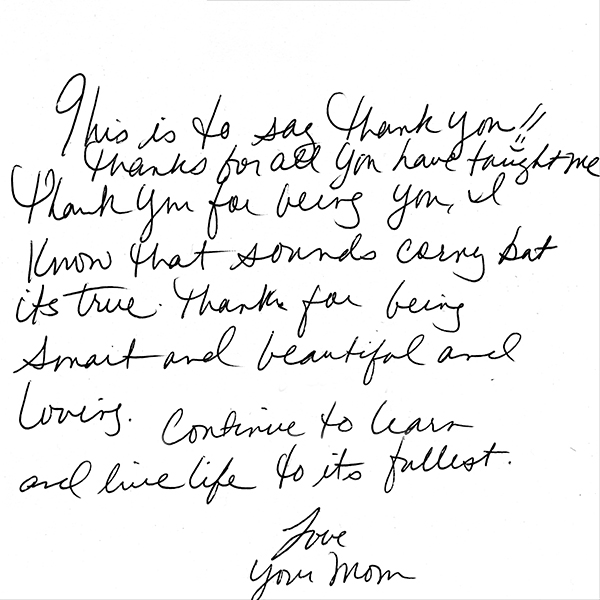 This is to say Thank you!!
Thanks for all you have taught me
Thank you for being you, I
Know that sounds corny but
its true. Thanks for being
smart and beautiful and
Loving. Continue to learn
and live life to its fullest.
Love
Your Mom